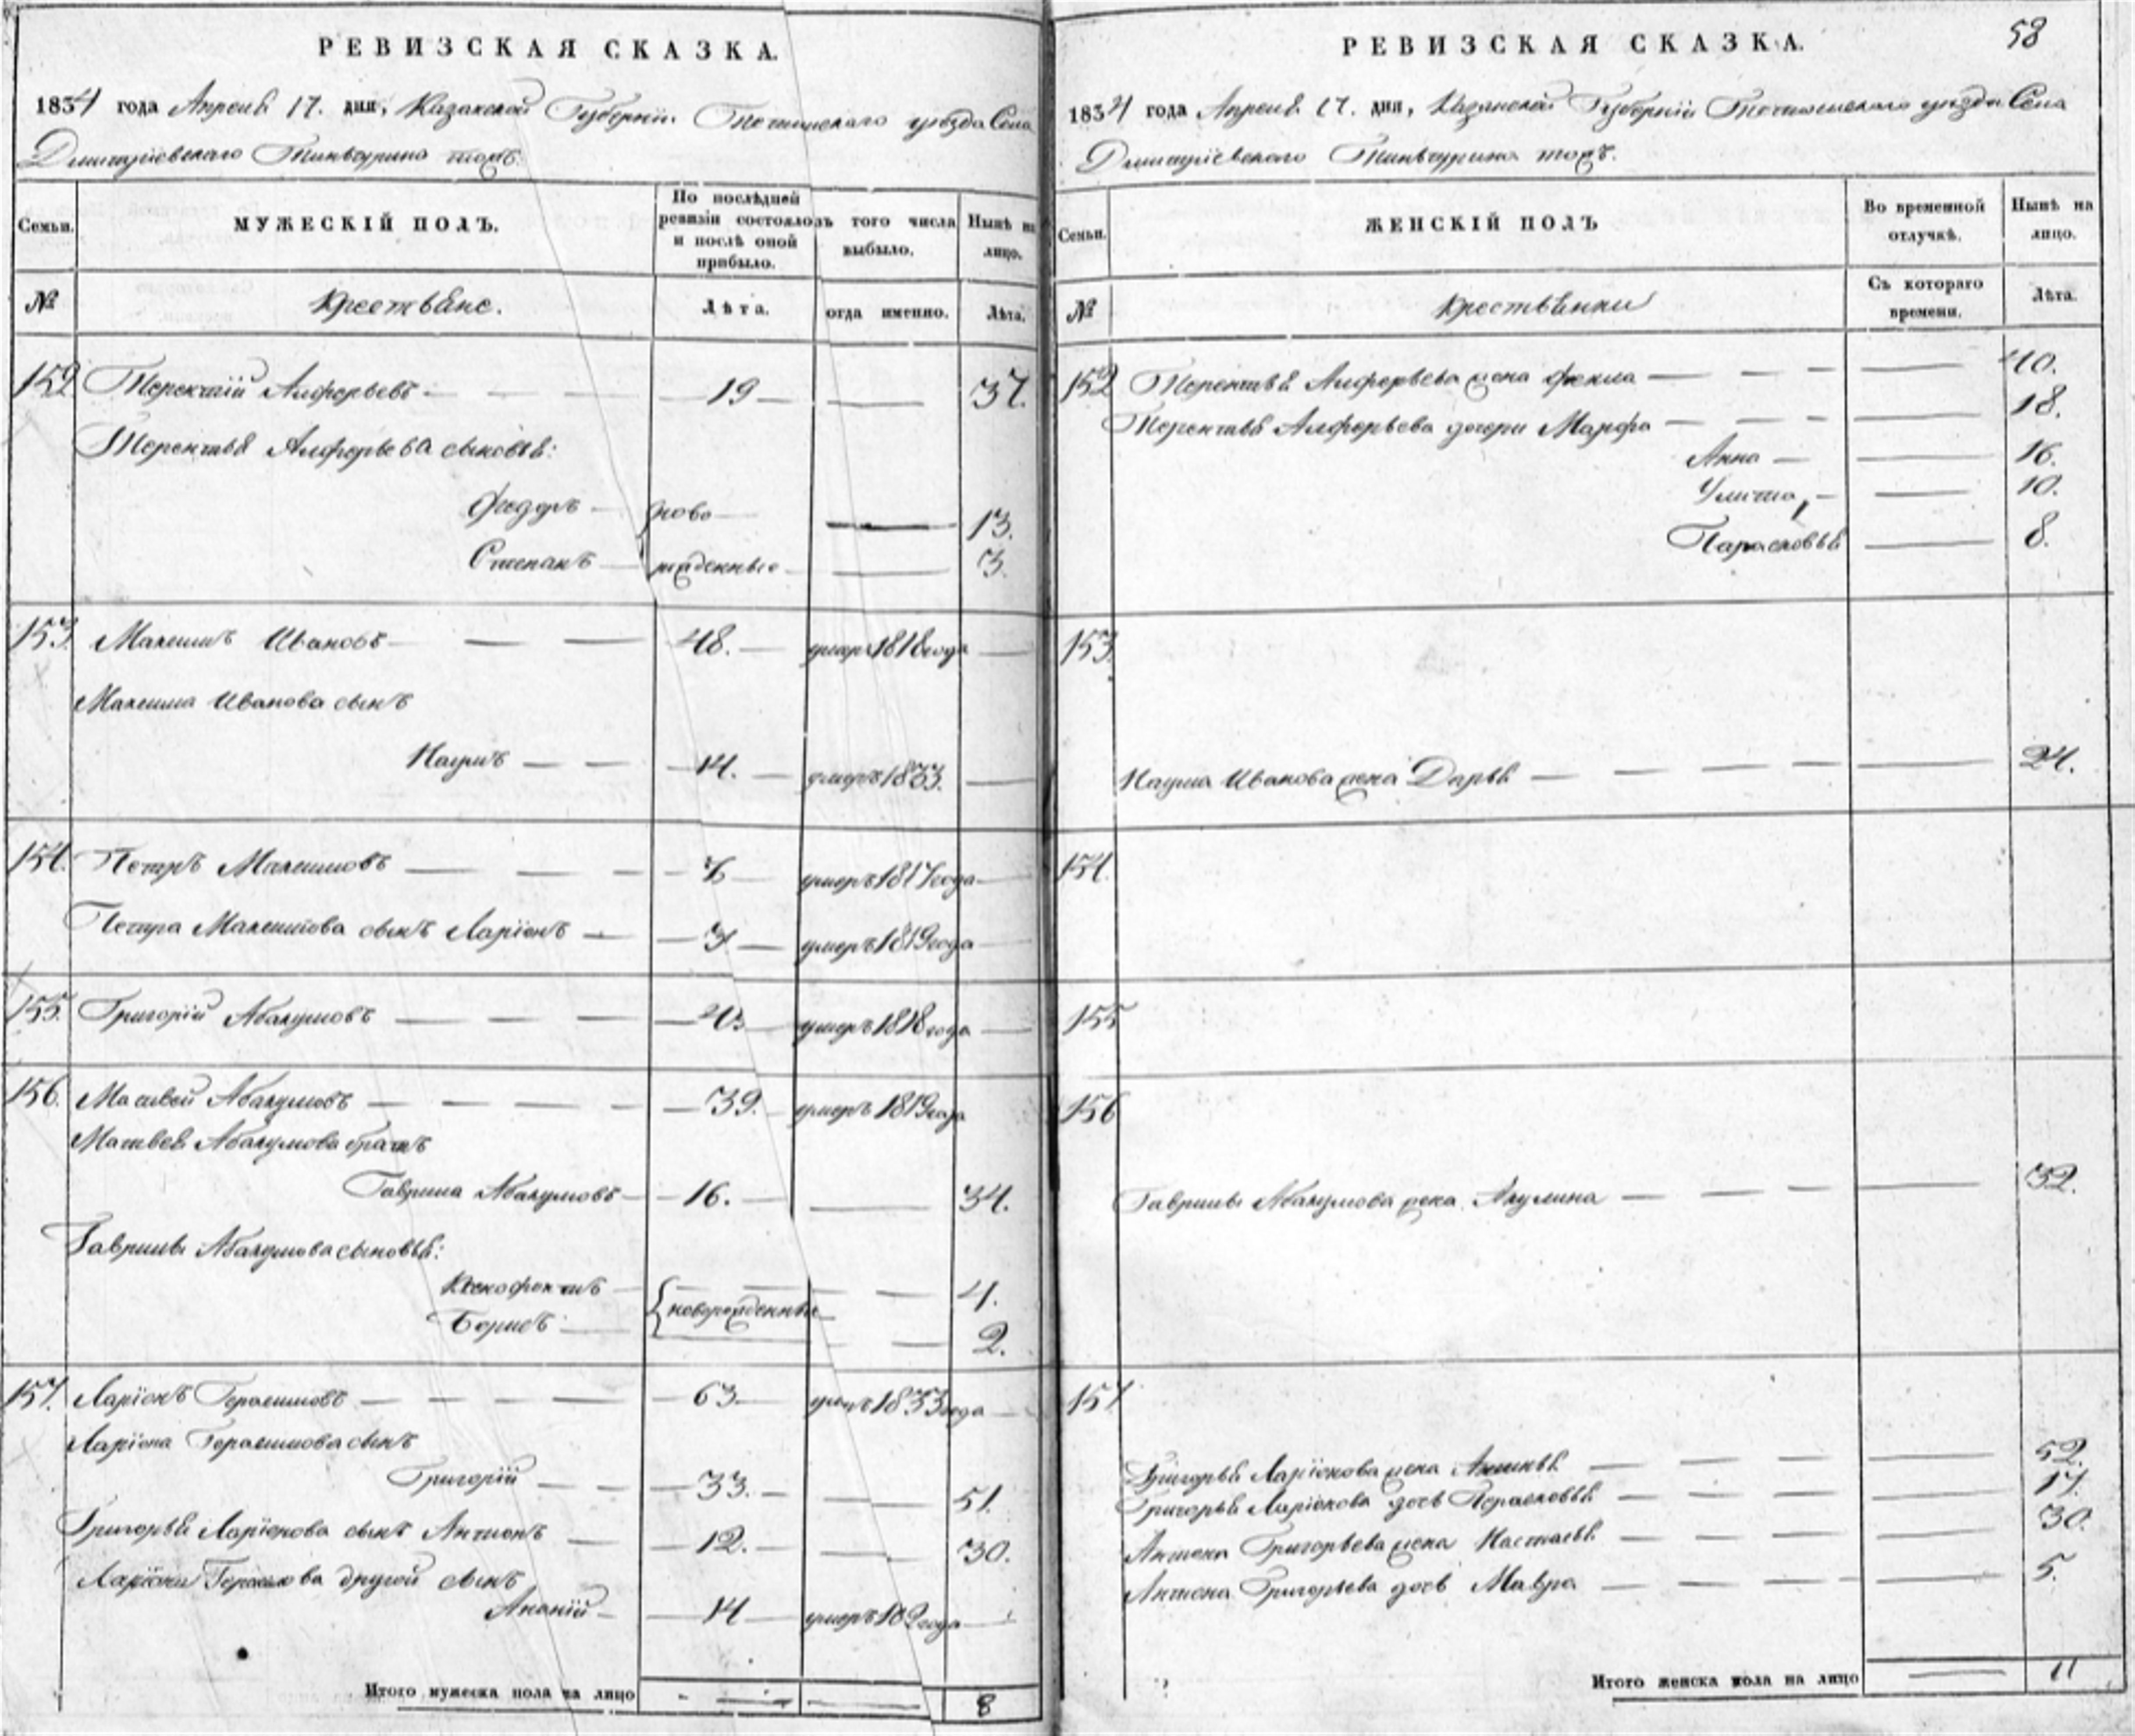 РЕВИЗСКАЯ СКАЗКА.
1834 года Апреля 17. дня, Казанской Губернiи Тетюшскаго уѣзда Села
Дмитрiевскаго Тинчурино тожъ.
Семьи.
МУЖЕСКIЙ ПОЛЪ.
По послѣдней
ревизiи состояло
и послѣ оной
прибыло.
зъ того числа
выбыло.
Нынѣ на
лицо.
№
Крестьяне.
Лѣта.
огда именно.
Лѣта.
152 Терентiй Алферьевъ 19 37.
Терентья Алферьева сыновья:
Федоръ ново 13.
Степанъ рожденные 3.
153. Максимъ Ивановъ 48. умеръ 1818 года
Максима Иванова сынъ
Наумъ 14. умеръ 1833.
154. Петръ Максимовъ умеръ 1817 года
Петра Максимова сынъ Ларiонъ умеръ 1819 года
155. Григорiй Абакумовъ умеръ 1818 года
156. Матвей Абакумовъ 39. умеръ 1819 года
Матвея Абакумова братъ
Гаврила Абакумовъ 16. 34.
Гаврилы Абакумова сыновья:
Ксенофонтъ новорожденные 4.
Борисъ 2.
157. Ларiонъ Герасимовъ 63 умеръ 1833 года
Ларiона Герасимова сынъ
Григорiй 33. 51.
Григорья Ларiонова сынъ Антонъ 12. 30.
Ларiона Герасимова другой сынъ
Ананiй 14 умеръ года
Итого мужеска пола на лицо 8
58
РЕВИЗСКАЯ СКАЗКА.
1834 года Апреля 17. дня, Казанской Губернiи Тетюшскаго уѣзда Села
Дмитрiевскаго Тинчурино тожъ.
Семьи.
ЖЕНСКIЙ ПОЛЪ
Во временной
отлучкѣ.
Нынѣ на
лицо.
№
Крестьянки
Съ котораго
времени.
Лѣта.
152 Терентья Алферьева жена Фекла 40.
Терентья Алферьева дочери Марфа 18.
Анна 16.
Улита 10.
Парасковья 8.
153.
Наума Иванова жена Дарья 24.
154.
155
156
Гаврилы Абакумова жена Акулина 32.
157
Григорья Ларiонова жена Аксинья 52.
Григорья Ларiонова дочь Парасковья 17.
Антона Григорьева жена Настасья 30.
Антона Григорьева дочь Мавра 5.
Итого женска пола на лицо 11